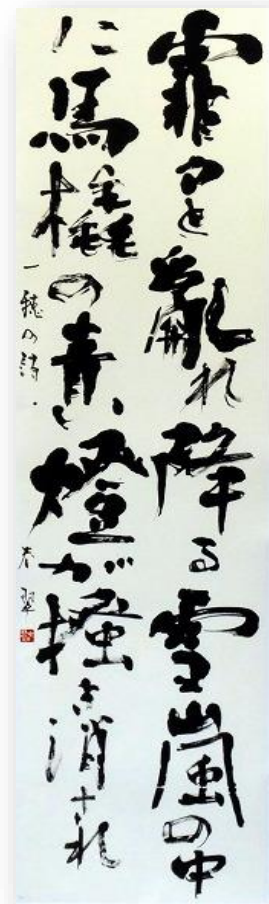 霏々と亂れ降る雪嵐の中
に馬橇の青い燈が搔き消され
一穂の詩 春翠